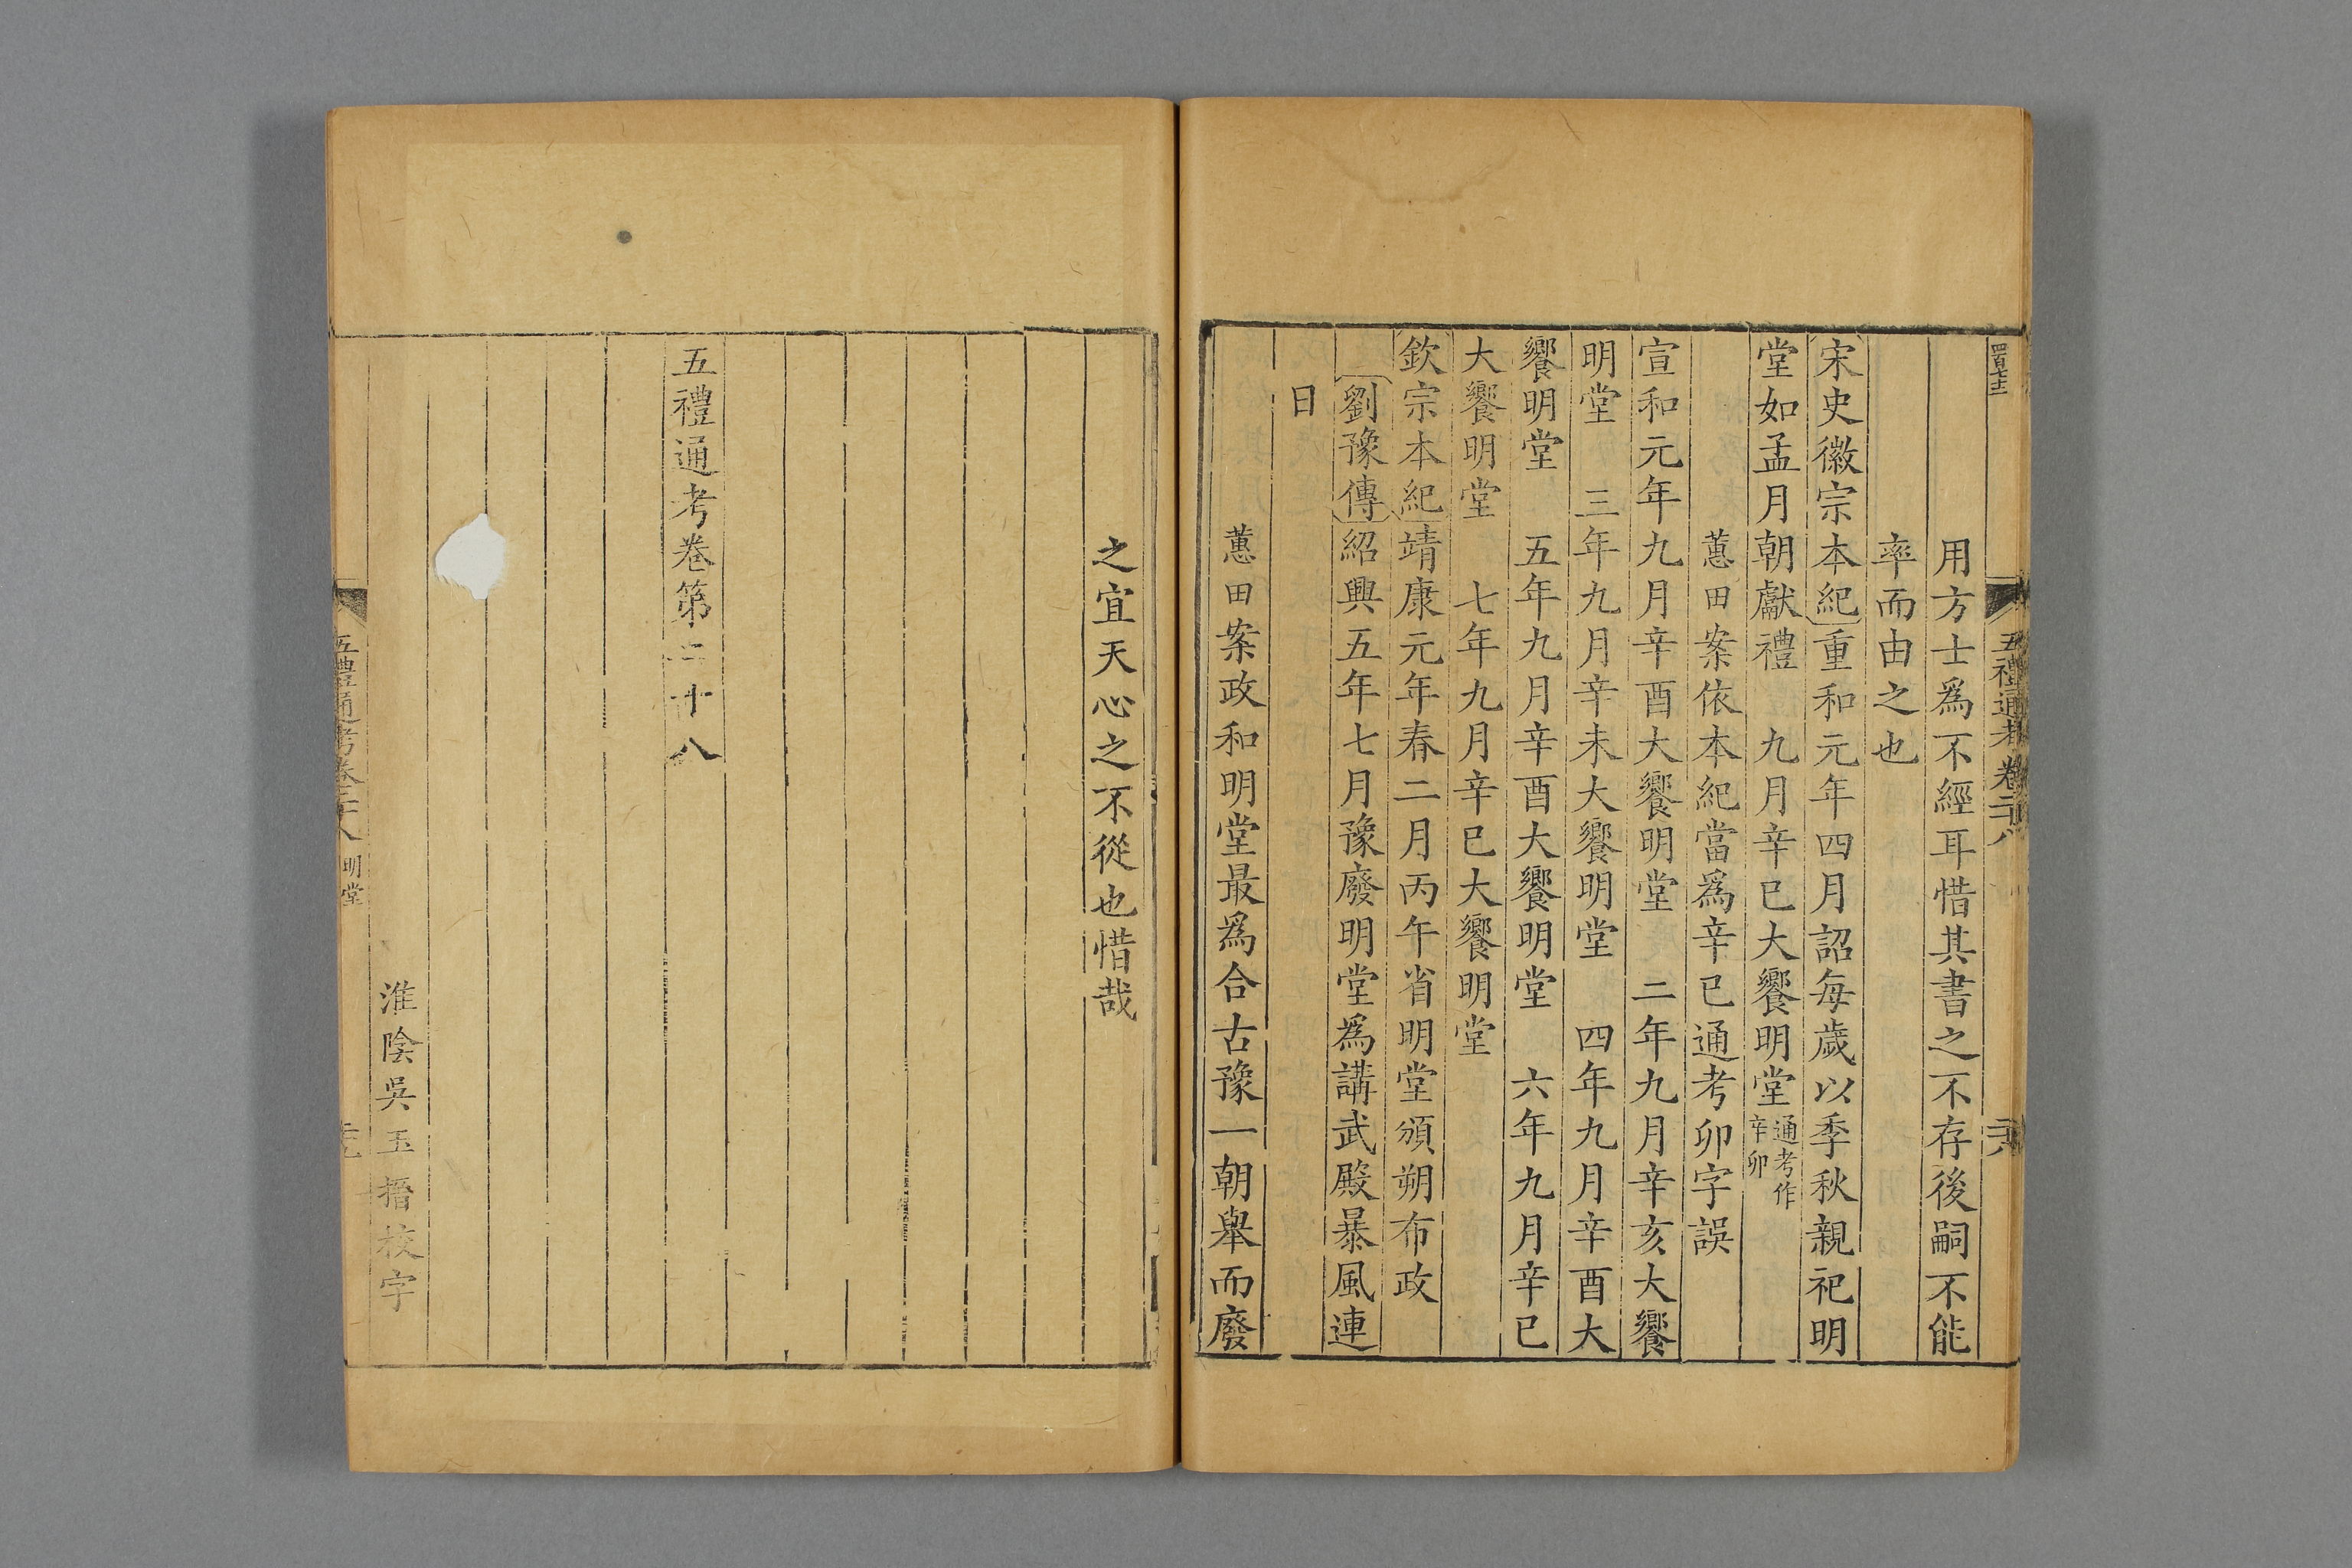 五禮通考 卷二十八
用方士爲不經耳惜其書之不存後嗣不能
率而由之也
宋史徽宗本紀重和元年四月詔每歲以季秋親祀明
堂如孟月朝獻禮 九月辛巳大饗明堂通考作辛卯
蕙田案依本紀當爲辛巳通考卯字誤
宣和元年九月辛酉大饗明堂 二年九月辛亥大饗
明堂 三年九月辛未大饗明堂 四年九月辛酉大
饗明堂 五年九月辛酉大饗明堂 六年九月辛巳
大饗明堂 七年九月辛巳大饗明堂
欽宗本紀靖康元年春二月丙午省明堂頒朔布政
劉豫傳紹興五年七月豫廢明堂爲講武殿暴風連
日
蕙田案政和明堂最爲合古豫一朝舉而廢
之宜天心之不從也惜哉
五禮通考卷第二十八
淮陰吳玉搢校字
五禮通考卷二十八 明堂